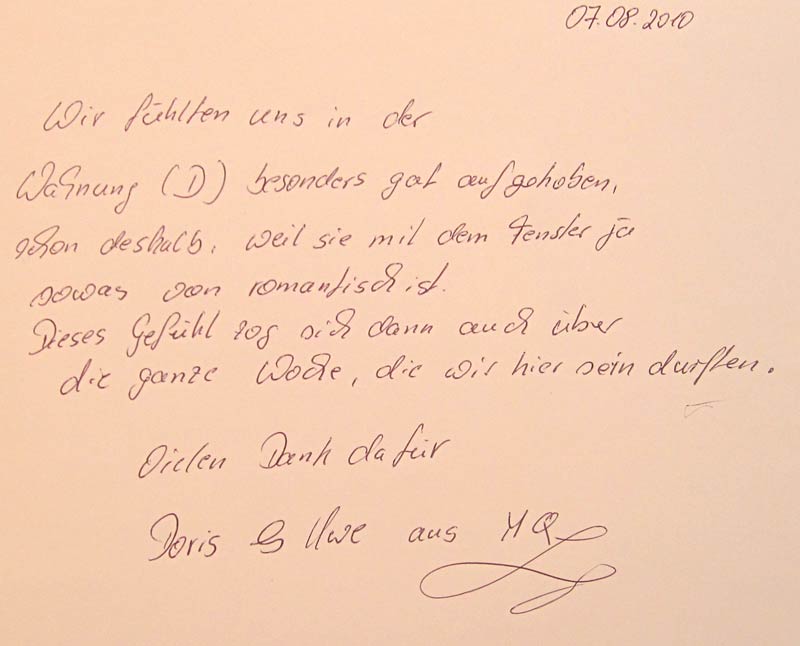 07.08.2010
Wir fühlten uns in der
Wohnung (D) besonders gut aufgehoben,
schon deshalb, weil sie mit dem Fenster ja
sowas von romantisch ist.
Dieses Gefühl zog sich dann auch über
die ganze Woche, die wir hier sein durften.
Vielen Dank dafür
Doris & Uwe aus MQ